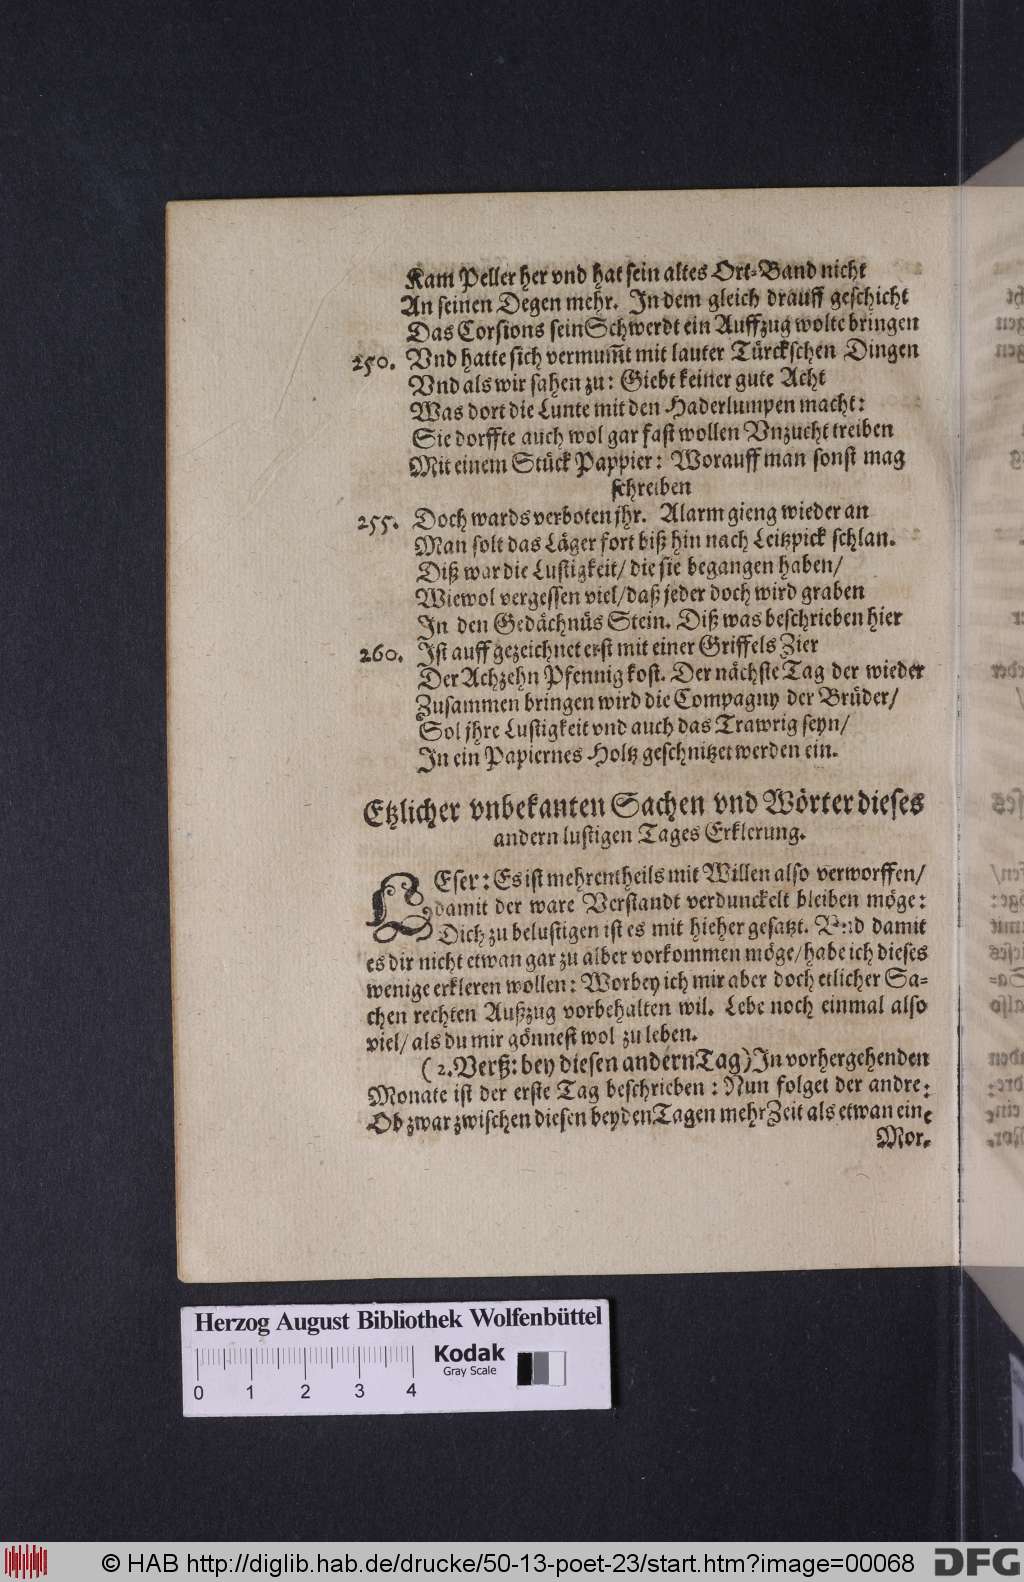 Kam Peller her vnd hat sein altes Ort-Band nicht
An seinen Degen mehr. In dem gleich drauff geschicht
Das Corsions sein Schwerdt ein Auffzug wolte bringen
250. Vnd hatte sich vermum̃t mit lauter Türckschen Dingen
Vnd als wir sahen zu: Giebt keiner gute Acht
Was dort die Lunte mit den Haderlumpen macht:
Sie dorffte auch wol gar fast wollen Vnzucht treiben
Mit einem Stück Pappier: Worauff man sonst mag
schreiben
255. Doch wards verboten jhr. Alarm gieng wieder an
Man solt das Läger fort biß hin nach Leitzpick schlan.
Diß war die Lustigkeit/ die sie begangen haben/
Wiewol vergessen viel/ daß jeder doch wird graben
In den Gedächnüs Stein. Diß was beschrieben hier
260. Ist auff gezeichnet erst mit einer Griffels Zier
Der Achzehn Pfennig kost. Der nächste Tag der wieder
Zusammen bringen wird die Compagny der Brüder/
Sol jhre Lustigkeit vnd auch das Trawrig seyn/
In ein Papiernes Holtz geschnitzet werden ein.
Etzlicher vnbekanten Sachen vnd Wörter dieses
andern lustigen Tages Erklerung.
LEser: Es ist mehrentheils mit Willen also verworffen/
damit der ware Verstandt verdunckelt bleiben möge:
Dich zu belustigen ist es mit hieher gesatzt. Vnd damit
es dir nicht etwan gar zu alber vorkommen möge/ habe ich dieses
wenige erkleren wollen: Worbey ich mir aber doch etlicher Sa-
chen rechten Außzug vorbehalten wil. Lebe noch einmal also
viel/ als du mir gönnest wol zu leben.
(2. Verß: bey diesen andern Tag) In vorhergehenden
Monate ist der erste Tag beschrieben: Nun folget der andre:
Ob zwar zwischen diesen beyden Tagen mehr Zeit als etwan ein
Mor.
Herzog August Bibliothek Wolfenbüttel
Kodak
Gray Scale
0 1 2 3 4
© HAB http://diglib.hab.de/drucke/50-13-poet-23/start.htm?image=00068
DFG